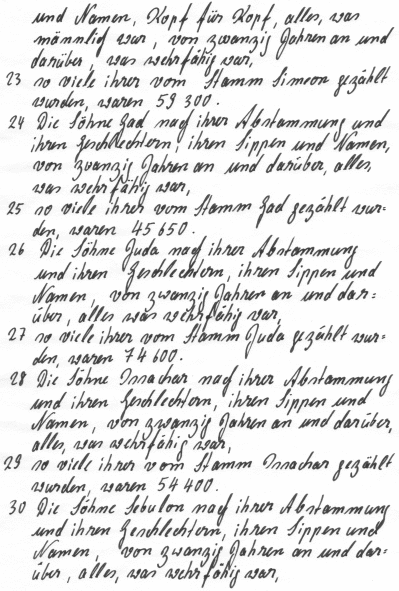 und Namen, Kopf für Kopf, alles, was
männlich war, von zwanzig Jahren an und
darüber, was wehrfähig war,
23 so viele ihrer vom Stamm Simeon gezählt
wurden, waren 59 300.
24 Die Söhne Gad nach ihrer Abstammung und
ihren Geschlechtern, ihren Sippen und Namen,
von zwanzig Jahren an und darüber, alles,
was wehrfähig war,
25 so viele ihrer vom Stamm Gad gezählt wur-
den, waren 45 650.
26 Die Söhne Juda nach ihrer Abstammung
und ihren Geschlechtern, ihren Sippen und
Namen, von zwanzig Jahren an und dar=
über, alles was wehrfähig war,
27 so viele ihrer vom Stamm Juda gezählt wur=
den, waren 74 600.
28 Die Söhne Issachar nach ihrer Abstammung
und ihren Geschlechtern, ihren Sippen und
Namen, von zwanzig Jahren an und darüber,
alles, was wehrfähig war,
29 so viele ihrer vom Stamm Issachar gezählt
wurden, waren 54 400.
30 Die Söhne Sebulon nach ihrer Abstammung
und ihren Geschlechtern, ihren Sippen und
Namen, von zwanzig Jahren an und dar=
über, alles, was wehrfähig war,